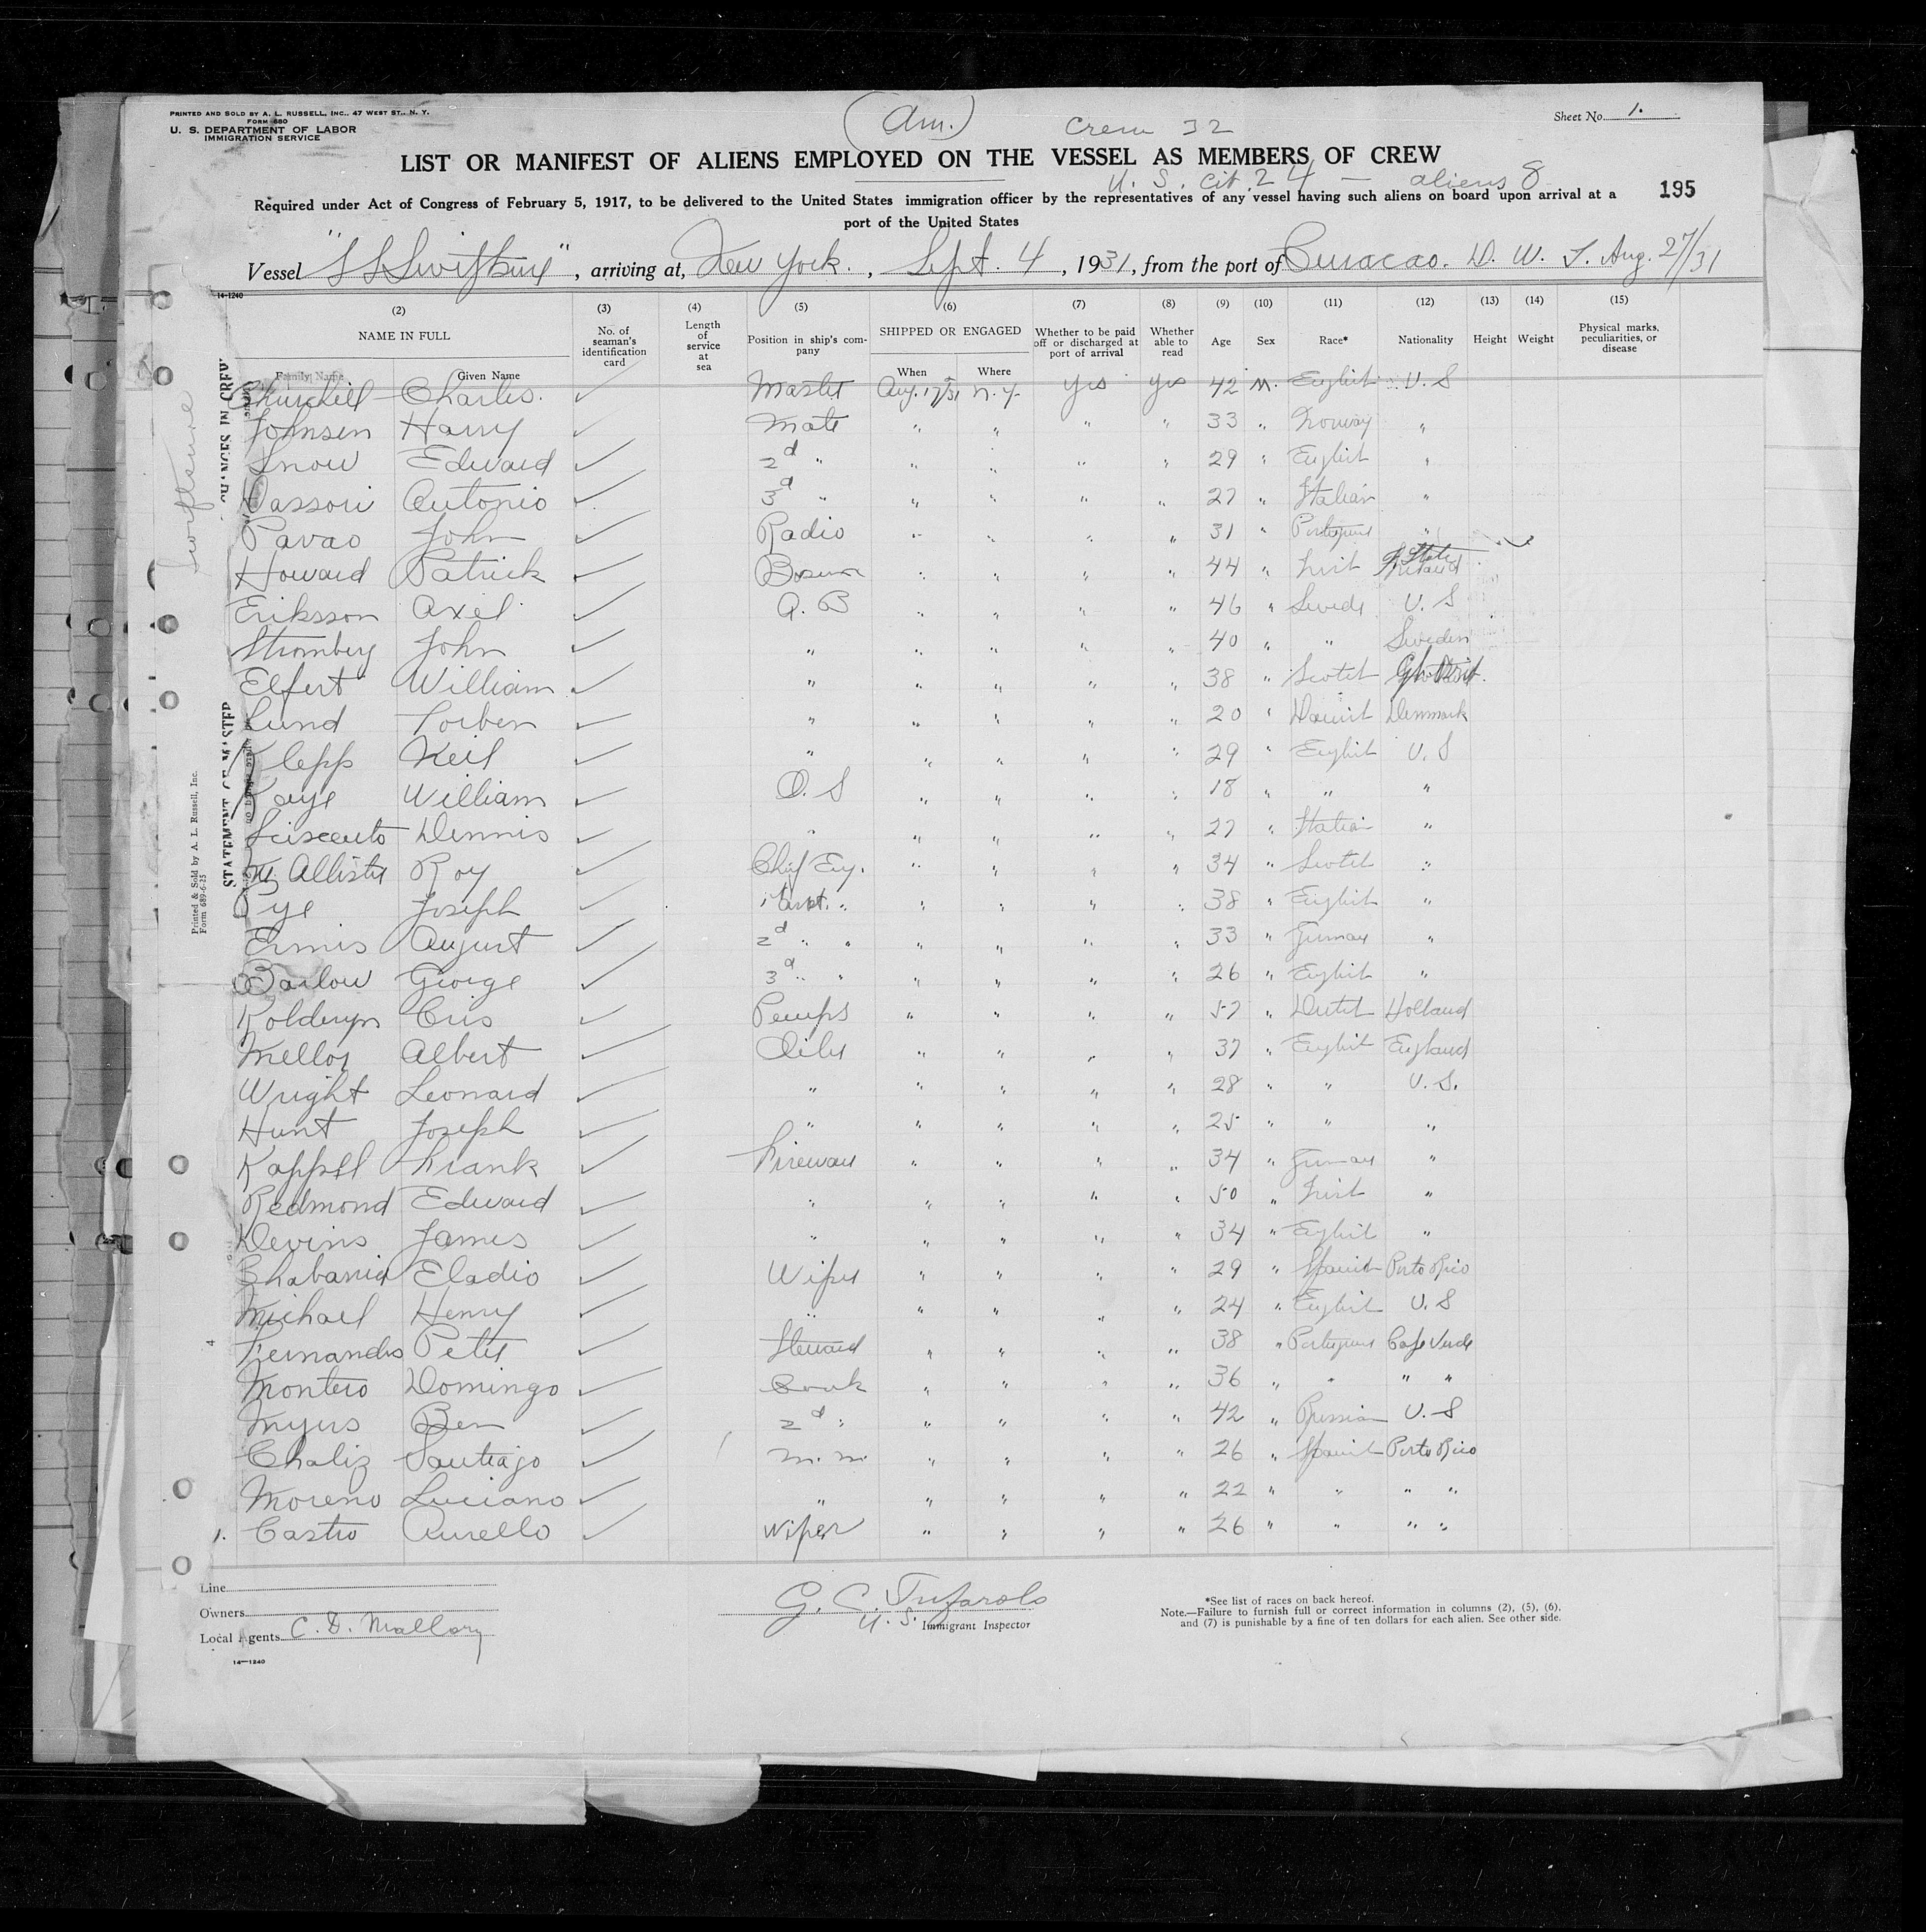 PRINTED AND SOLD BY A. L. RUSSELL, INC., 47 WEST ST., N. Y.
FORM 680
U. S. DEPARTMENT OF LABOR
IMMIGRATION SERVICE
(Am.)
Crew 32
Sheet No. 1.
LIST OR MANIFEST OF ALIENS EMPLOYED ON THE VESSEL AS MEMBERS OF CREW
U. S. cit. 24 — aliens 8
195
Required under Act of Congress of February 5, 1917, to be delivered to the United States immigration officer by the representatives of any vessel having such aliens on board upon arrival at a
port of the United States
Vessel "SS Swiftsure", arriving at, New York., Sept. 4, 1931, from the port of Curacao. D. W. I. Aug. 27/31
14-1240
(2) (3) (4) (5) (6) (7) (8) (9) (10) (11) (12) (13) (14) (15)
NAME IN FULL No. of seaman's identification card Length of service at sea Position in ship's company SHIPPED OR ENGAGED Whether to be paid off or discharged at port of arrival Whether able to read Age Sex Race* Nationality Height Weight Physical marks, peculiarities, or disease
Family Name Given Name When Where
Churchill Charles. ✓ Master Aug. 17/31 N. Y. Yes Yes 42 M. English U. S
Johnsen Harry ✓ Mate " " " " 33 " Norway "
Snow Edward ✓ 2d " " " " " 29 " English "
Dassori Antonio ✓ 3d " " " " " 27 " Italian "
Pavao John ✓ Radio " " " " 31 " Portuguese "
Howard Patrick ✓ Bosun " " " " 44 " Irish
Eriksson Axel ✓ A. B " " " " 46 " Swede U. S
Stromberg John ✓ " " " " " 40 " " Sweden
Elfert William ✓ " " " " " 38 " Scotch Gt. Brit.
Lund Torben ✓ " " " " " 20 " Danish Denmark
Klepp Neil ✓ " " " " " 29 " English U. S
Kaye William ✓ O. S " " " " 18 " " "
Dennis ✓ " " " " " 27 " Italian "
McAllister Roy ✓ Chief Eng. " " " " 34 " Scotch "
Pye Joseph ✓ 1 Asst. " " " " " 38 " English "
Ermis August ✓ 2d " " " " " " 33 " German "
Barlow George ✓ 3d " " " " " " 26 " English "
Kolderyn Cris ✓ Pumps " " " " 57 " Dutch Holland
Mellor Albert ✓ Oiler " " " " 37 " English England
Wright Leonard ✓ " " " " " 28 " " U. S.
Hunt Joseph ✓ " " " " " 25 " " "
Kappel Frank ✓ Fireman " " " " 34 " German "
Redmond Edward ✓ " " " " " 50 " Irish "
Devins James ✓ " " " " " 34 " English "
Eladio ✓ Wiper " " " " 29 " Spanish Porto Rico
Michael Henry ✓ " " " " " 24 " English U. S
Fernandes Peter ✓ Steward " " " " 38 " Portuguese Cape Verde
Montero Domingo ✓ Cook " " " " 36 " " " "
Myers Ben ✓ 2d " " " " " 42 " Russian U. S
Chaliz Santiago ✓ M. M. " " " " 26 " Spanish Porto Rico
Moreno Luciano ✓ " " " " " 22 " " " "
1. Castro Aurello ✓ Wiper " " " " 26 " " " "
Line
Owners
Local Agents C. D. Mallory
14—1240
G. C. Tufarolo
U. S. Immigrant Inspector
*See list of races on back hereof.
Note.—Failure to furnish full or correct information in columns (2), (5), (6),
and (7) is punishable by a fine of ten dollars for each alien. See other side.
Swiftsure
CHANGES IN CREW
STATEMENT OF MASTER
Printed & Sold by A. L. Russell, Inc.
Form 689-6-25
4